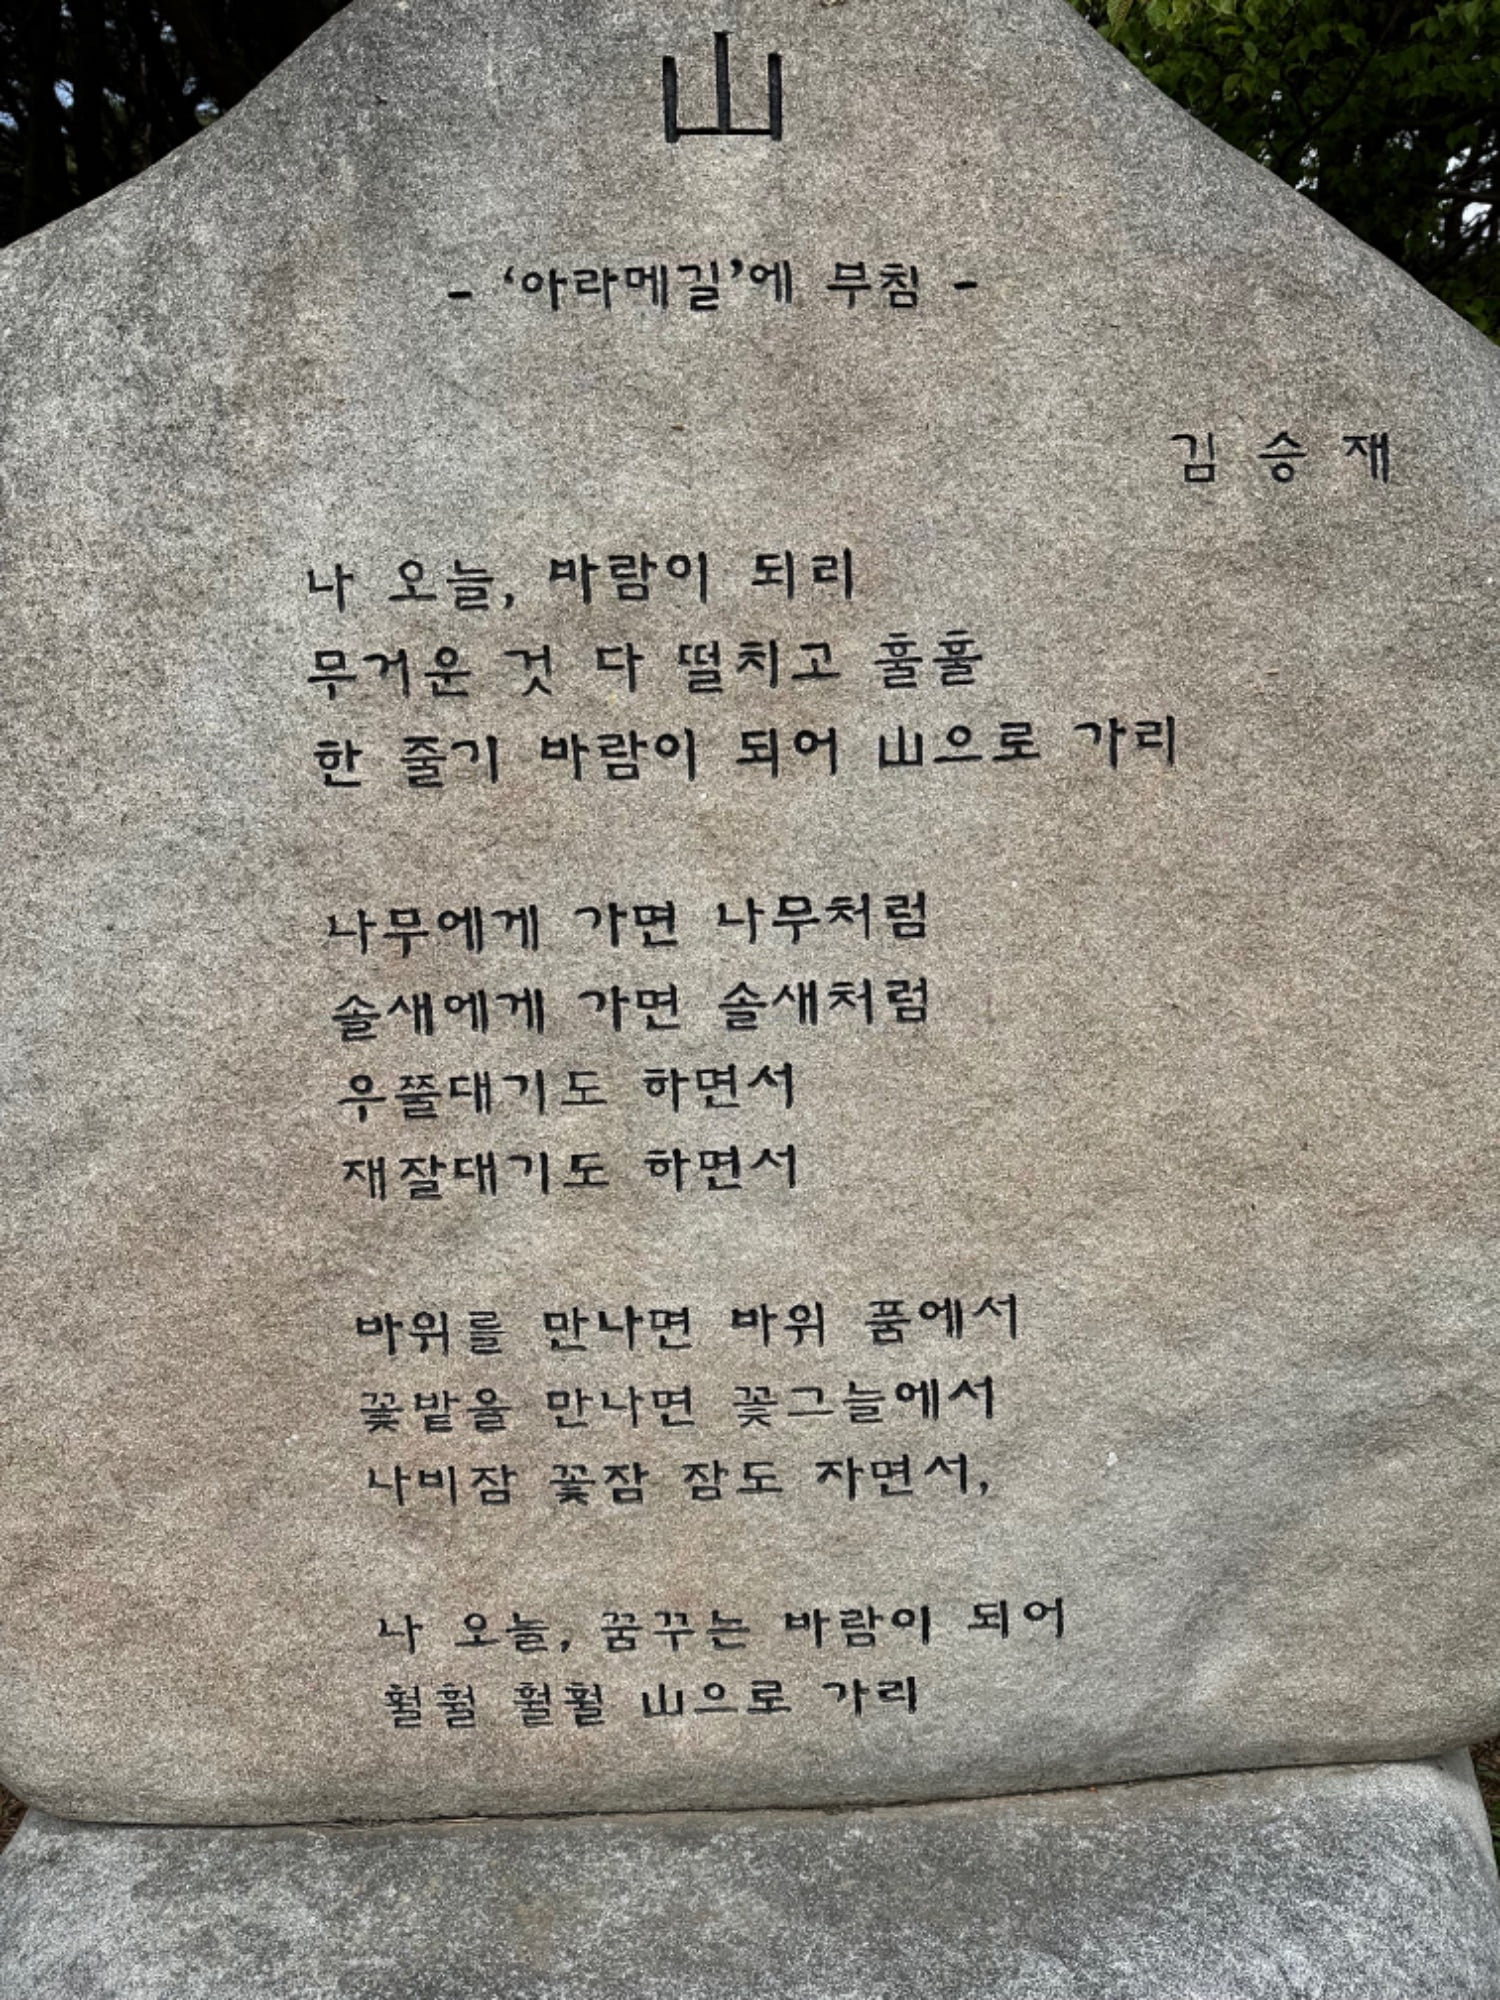 山
- ‘아라메길’에 부침 -
김 승 재
나 오늘, 바람이 되리
무거운 것 다 떨치고 훌훌
한 줄기 바람이 되어 山으로 가리
나무에게 가면 나무처럼
솔새에게 가면 솔새처럼
우쭐대기도 하면서
재잘대기도 하면서
바위를 만나면 바위 품에서
꽃밭을 만나면 꽃그늘에서
나비잠 꽃잠 잠도 자면서,
나 오늘, 꿈꾸는 바람이 되어
훨훨 훨훨 山으로 가리